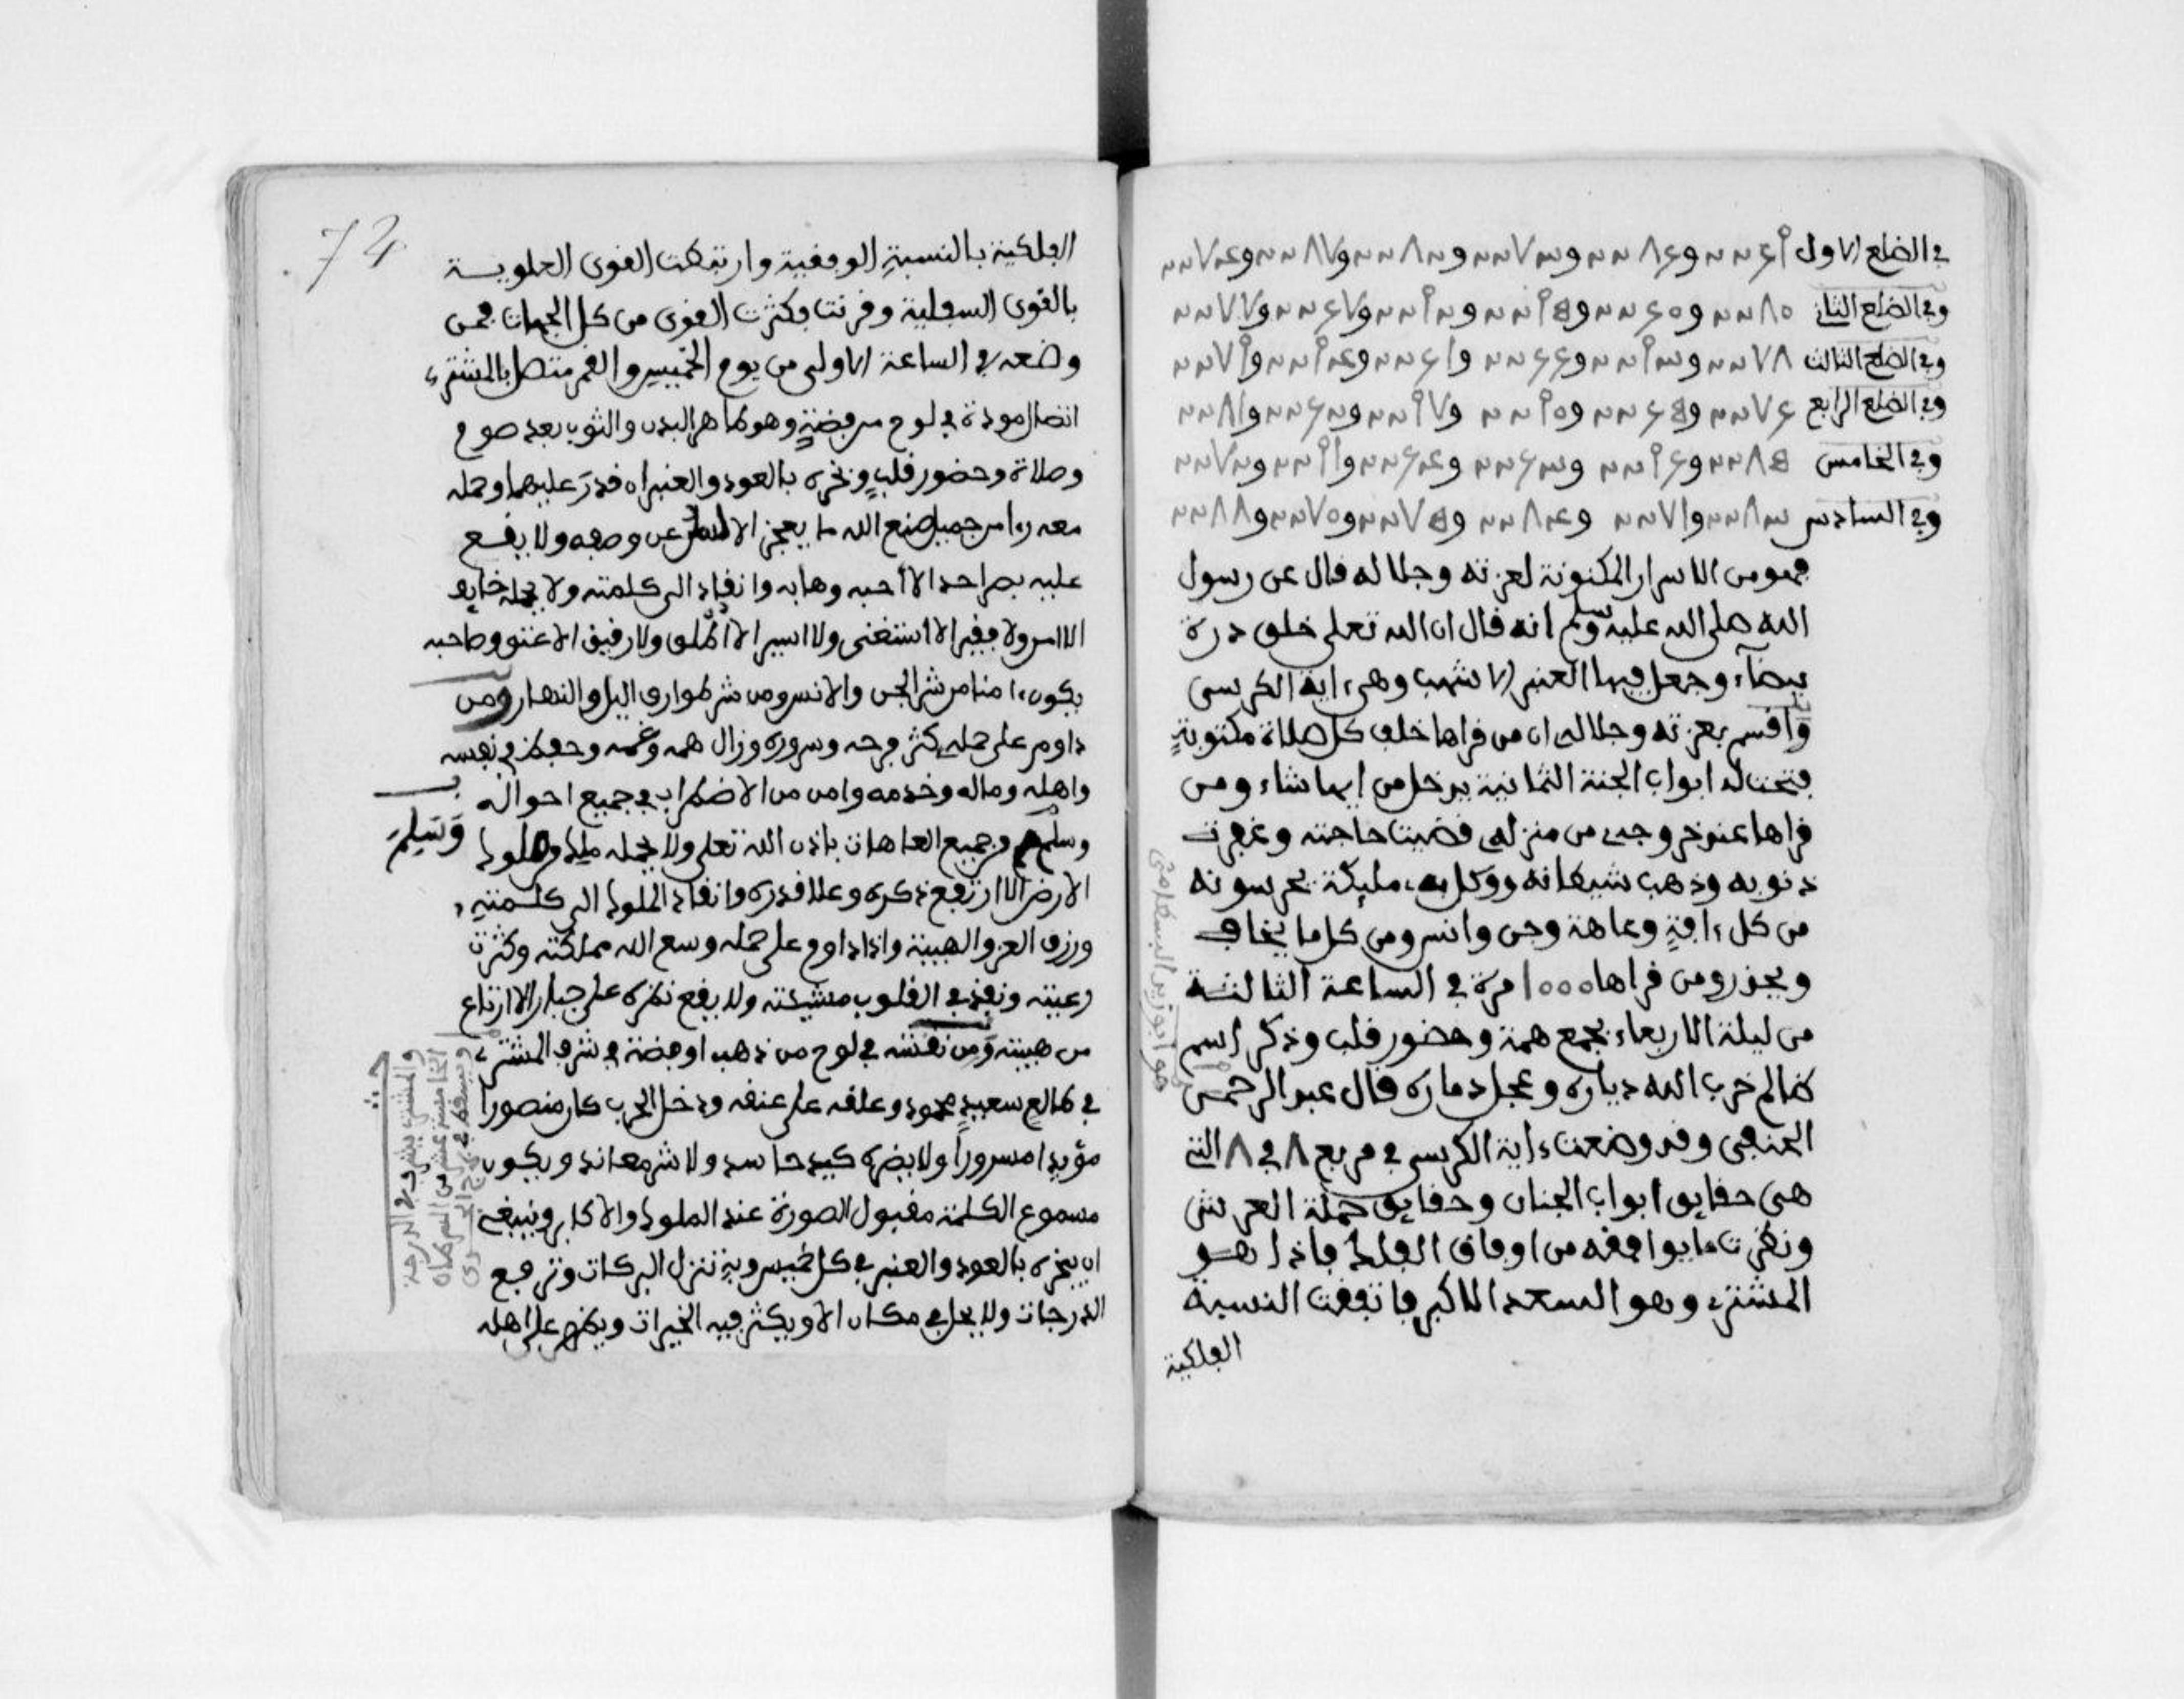 في الضلع الاول
وفي الضلع الثاني
وفي الضلع الثالث
وفي الضلع الرابع
وفي الخامس
وفي السادس
فهو من الاسرار المكنونة لعزته وجلاله فال عن رسول
الله صلى الله عليه وسلم انه فال ان الله تعلى خلق درة
بيضاء وجعل فيها العنبر الاشهب وهي ءاية الكرسى
وافسم بعزته وجلاله ان من فراها خلف كل صلاة مكتوبة
فتحت له ابواب الجنة الثمانية يدخل من ايها شاء ومن
فراها عند خروجه من منزله فضيت حاجته وغفرت
ذنوبه وذهب شيطانه ووكل به مليكة يحرسونه
من كل ءافة وعاهة وجن وانس ومن كل ما يخاف
ويحذر ومن فراها ١٠٠٠ مرة في الساعة الثالثة
من ليلة الاربعاء بجمع همة وحضور فلب وذكر اسم
ظالم خرب الله دياره وعجل دماره فال عبد الرحمن
وفد وضعت ءاية الكرسي في مربع ٨ في ٨ التي
هى حفايق ابواب الجنان وحفايق حملة العرش
ونظرت ما يوافقه من اوفاق الفلك فاذا هو
المشترى وهو السعد الاكبر فاتفقت النسبة
الفلكية
هو ابو زيد البسطامي
74
الفلكية بالنسبة الوفقية وارتبطت القوى العلوية
بالقوى السفلية وفرنت فكثرت القوى من كل الجهات فمن
وضعه في الساعة الاولى من يوم الخميس والقمر متصل بالمشترى
اتصال مودة في لوح من فضة وهو طاهر البدن والثوب بعد صوم
وصلاة وحضور فلب وبخره بالعود والعنبر ان فدر عليهما وحمله
معه رءا من جميل صنع الله ما يعجز الالسن عن وصفه ولا يفع
عليه بصر احد الا احبه وهابه وانفاد الى كلمته ولا يحمله خايف
الا امن ولا ففير الا استغنى ولا اسير الا اطلق ولا رفيق الا عتق وصاحبه
يكون ءامنا من شر الجن والانس ومن شر طوارق اليل والنهار ومن
داوم على حمله كثر فرحه وسروره وزال همه وغمه وحفظ في نفسه
واهله وماله وخدمه وامن من الاضطراب في جميع احواله
وسلم من جميع العاهات باذن الله تعلى ولا يحمله ملك من ملوك
وتسلم
الارض الا ارتفع ذكره وعلا فدره وانفاد الملوك الى كلمته
ورزق العز والهيبة واذا داوم على حمله وسع الله مملكته وكثرت
رعيته ونفذ في الفلوب مشيئته ولا يفع نظره على جبار الا ارتاع
من هيبته ومن نقشه في لوح من ذهب او فضة في شرف المشترى
في طالع سعيد محمود وعلفه على عنفه ودخل الحرب كان منصورا
مؤيدا مسرورا ولا يضره كيد حاسد ولا شر معاند ويكون
مسموع الكلمة مفبول الصورة عند الملوك والاكابر وينبغي
ان يبخره بالعود والعنبر في كل خميس وبه تنزل البركات وترفع
الدرجات ولا يحل في مكان الا ويكثر فيه الخيرات ويظهر على اهله
والمشترى يشرف في الدرجة
الخامسة عشر من السرطان
ويسقط في برج الجدى